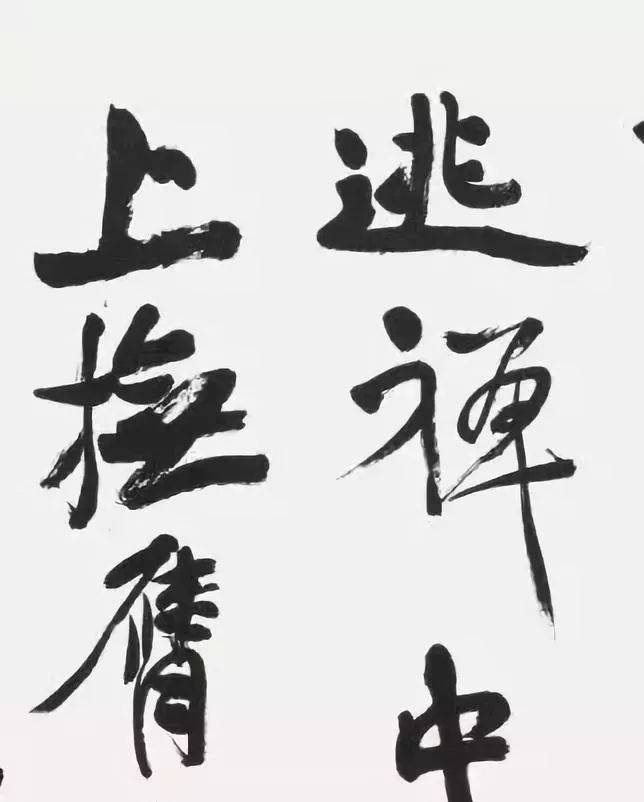 逃禅中
上抚膺